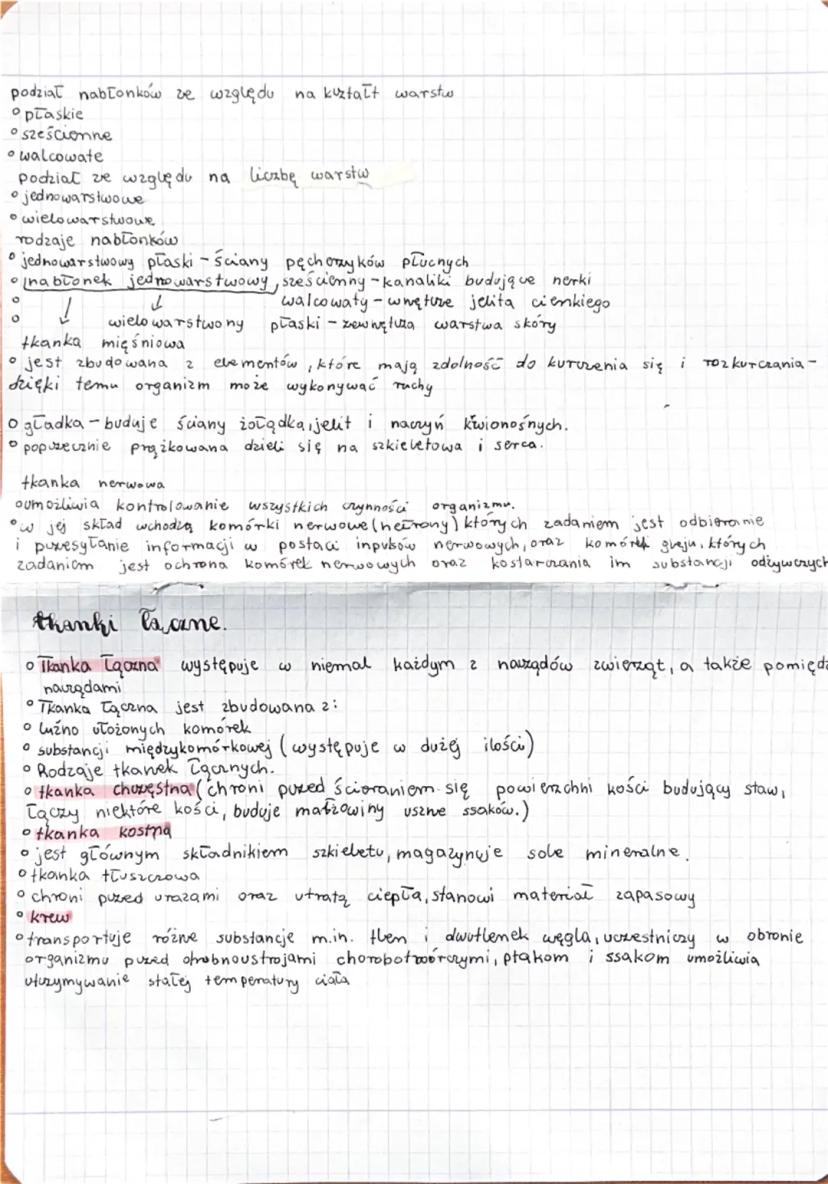 podział nabłonków ze względu na kształt warstw
° płaskie
° sześcienne
° walcowate
podział ze względu na liczbę warstw
° jednowarstwowe
° wielowarstwowe
rodzaje nabłonków
° jednowarstwowy płaski - ściany pęcherzyków płucnych
° nabłonek jednowarstwowy, sześcienny - kanaliki budujące nerki
° ↓ ↓ walcowaty - wnętrze jelita cienkiego
° wielowarstwony płaski - zewnętrza warstwa skóry
tkanka mięśniowa
° jest zbudowana z elementów, które mają zdolność do kurczenia się i rozkurczania -
dzięki temu organizm może wykonywać ruchy
o gładka - buduje ściany żołądka, jelit i naczyń krwionośnych.
° poprzecznie prążkowana dzieli się na szkieletowa i serca.
tkanka nerwowa
o umożliwia kontrolowanie wszystkich czynności organizmu.
° w jej skład wchodzą komórki nerwowe (neurony) których zadaniem jest odbieranie
i przesyłanie informacji w postaci inpulsów nerwowych, oraz komórek gleju, których
zadaniem jest ochrona komórek nerwowych oraz kostarczania im substancji odżywczych
tkanki łączne.
o Tkanka łączna występuje w niemal każdym z narządów zwierząt, a także pomiędz
narządami
° Tkanka łączna jest zbudowana z:
° luźno ułożonych komórek
° substancji międzykomórkowej (występuje w dużej ilości)
° Rodzaje tkanek łącznych.
o tkanka chrzęstna (chroni przed ścieraniem się powierzchni kości budujący staw,
łączy niektóre kości, buduje małżowiny uszne ssaków.)
° tkanka kostna
° jest głównym składnikiem szkieletu, magazynuje sole mineralne.
° tkanka tłuszczowa
° chroni przed urazami oraz utratą ciepła, stanowi materiał zapasowy
° krew
° transportuje różne substancje m.in. tlen i dwutlenek węgla, uczestniczy w obronie
organizmu przed drobnoustrojami chorobotwórczymi, ptakom i ssakom umożliwia
utrzymywanie stałej temperatury ciała